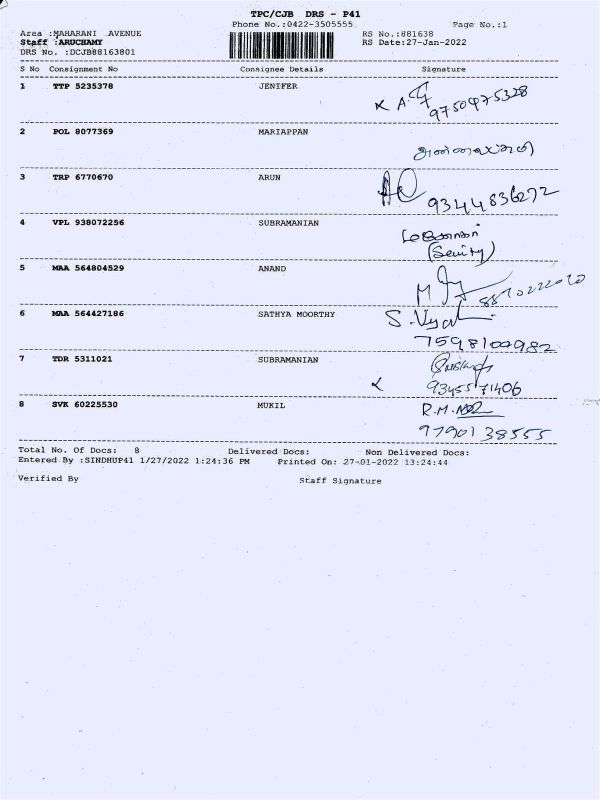 TPC/CJB DRS - P41
Phone No.:0422-3505555 Page No.:1
Area :MAHARANI AVENUE RS No.:881638
Staff :ARUCHAMY RS Date:27-Jan-2022
DRS No. :DCJB88163801
S No Consignment No Consignee Details Signature
1 TTP 5235378 JENIFER
9750975328
2 POL 8077369 MARIAPPAN
3 TRP 6770670 ARUN
9344836272
4 VPL 938072256 SUBRAMANIAN
5 MAA 564804529 ANAND
6 MAA 564427186 SATHYA MOORTHY
7598100982
7 TDR 5311021 SUBRAMANIAN
9345571406
8 SVK 60225530 MUKIL R.M.
9790138555
Total No. Of Docs: 8 Delivered Docs: Non Delivered Docs:
Entered By :SINDHUP41 1/27/2022 1:24:36 PM Printed On: 27-01-2022 13:24:44
Verified By Staff Signature